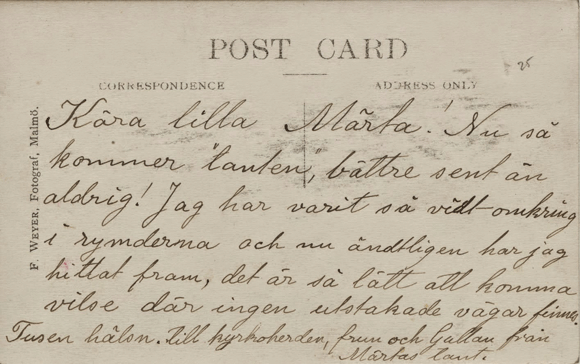 POST CARD
CORRESPONDENCE
ADDRESS ONLY
25
F. WEYER, Fotograf, Malmö.
Kära lilla Märta! Nu så
kommer "tanten", bättre sent än
aldrig! Jag har varit så vidt omkring
i rymderna och nu ändtligen har jag
hittat fram, det är så lätt att komma
vilse där ingen utstakade vägar finnes
Tusen hälsn. till kyrkoherden, frun och Gallau från
Märtas tant.